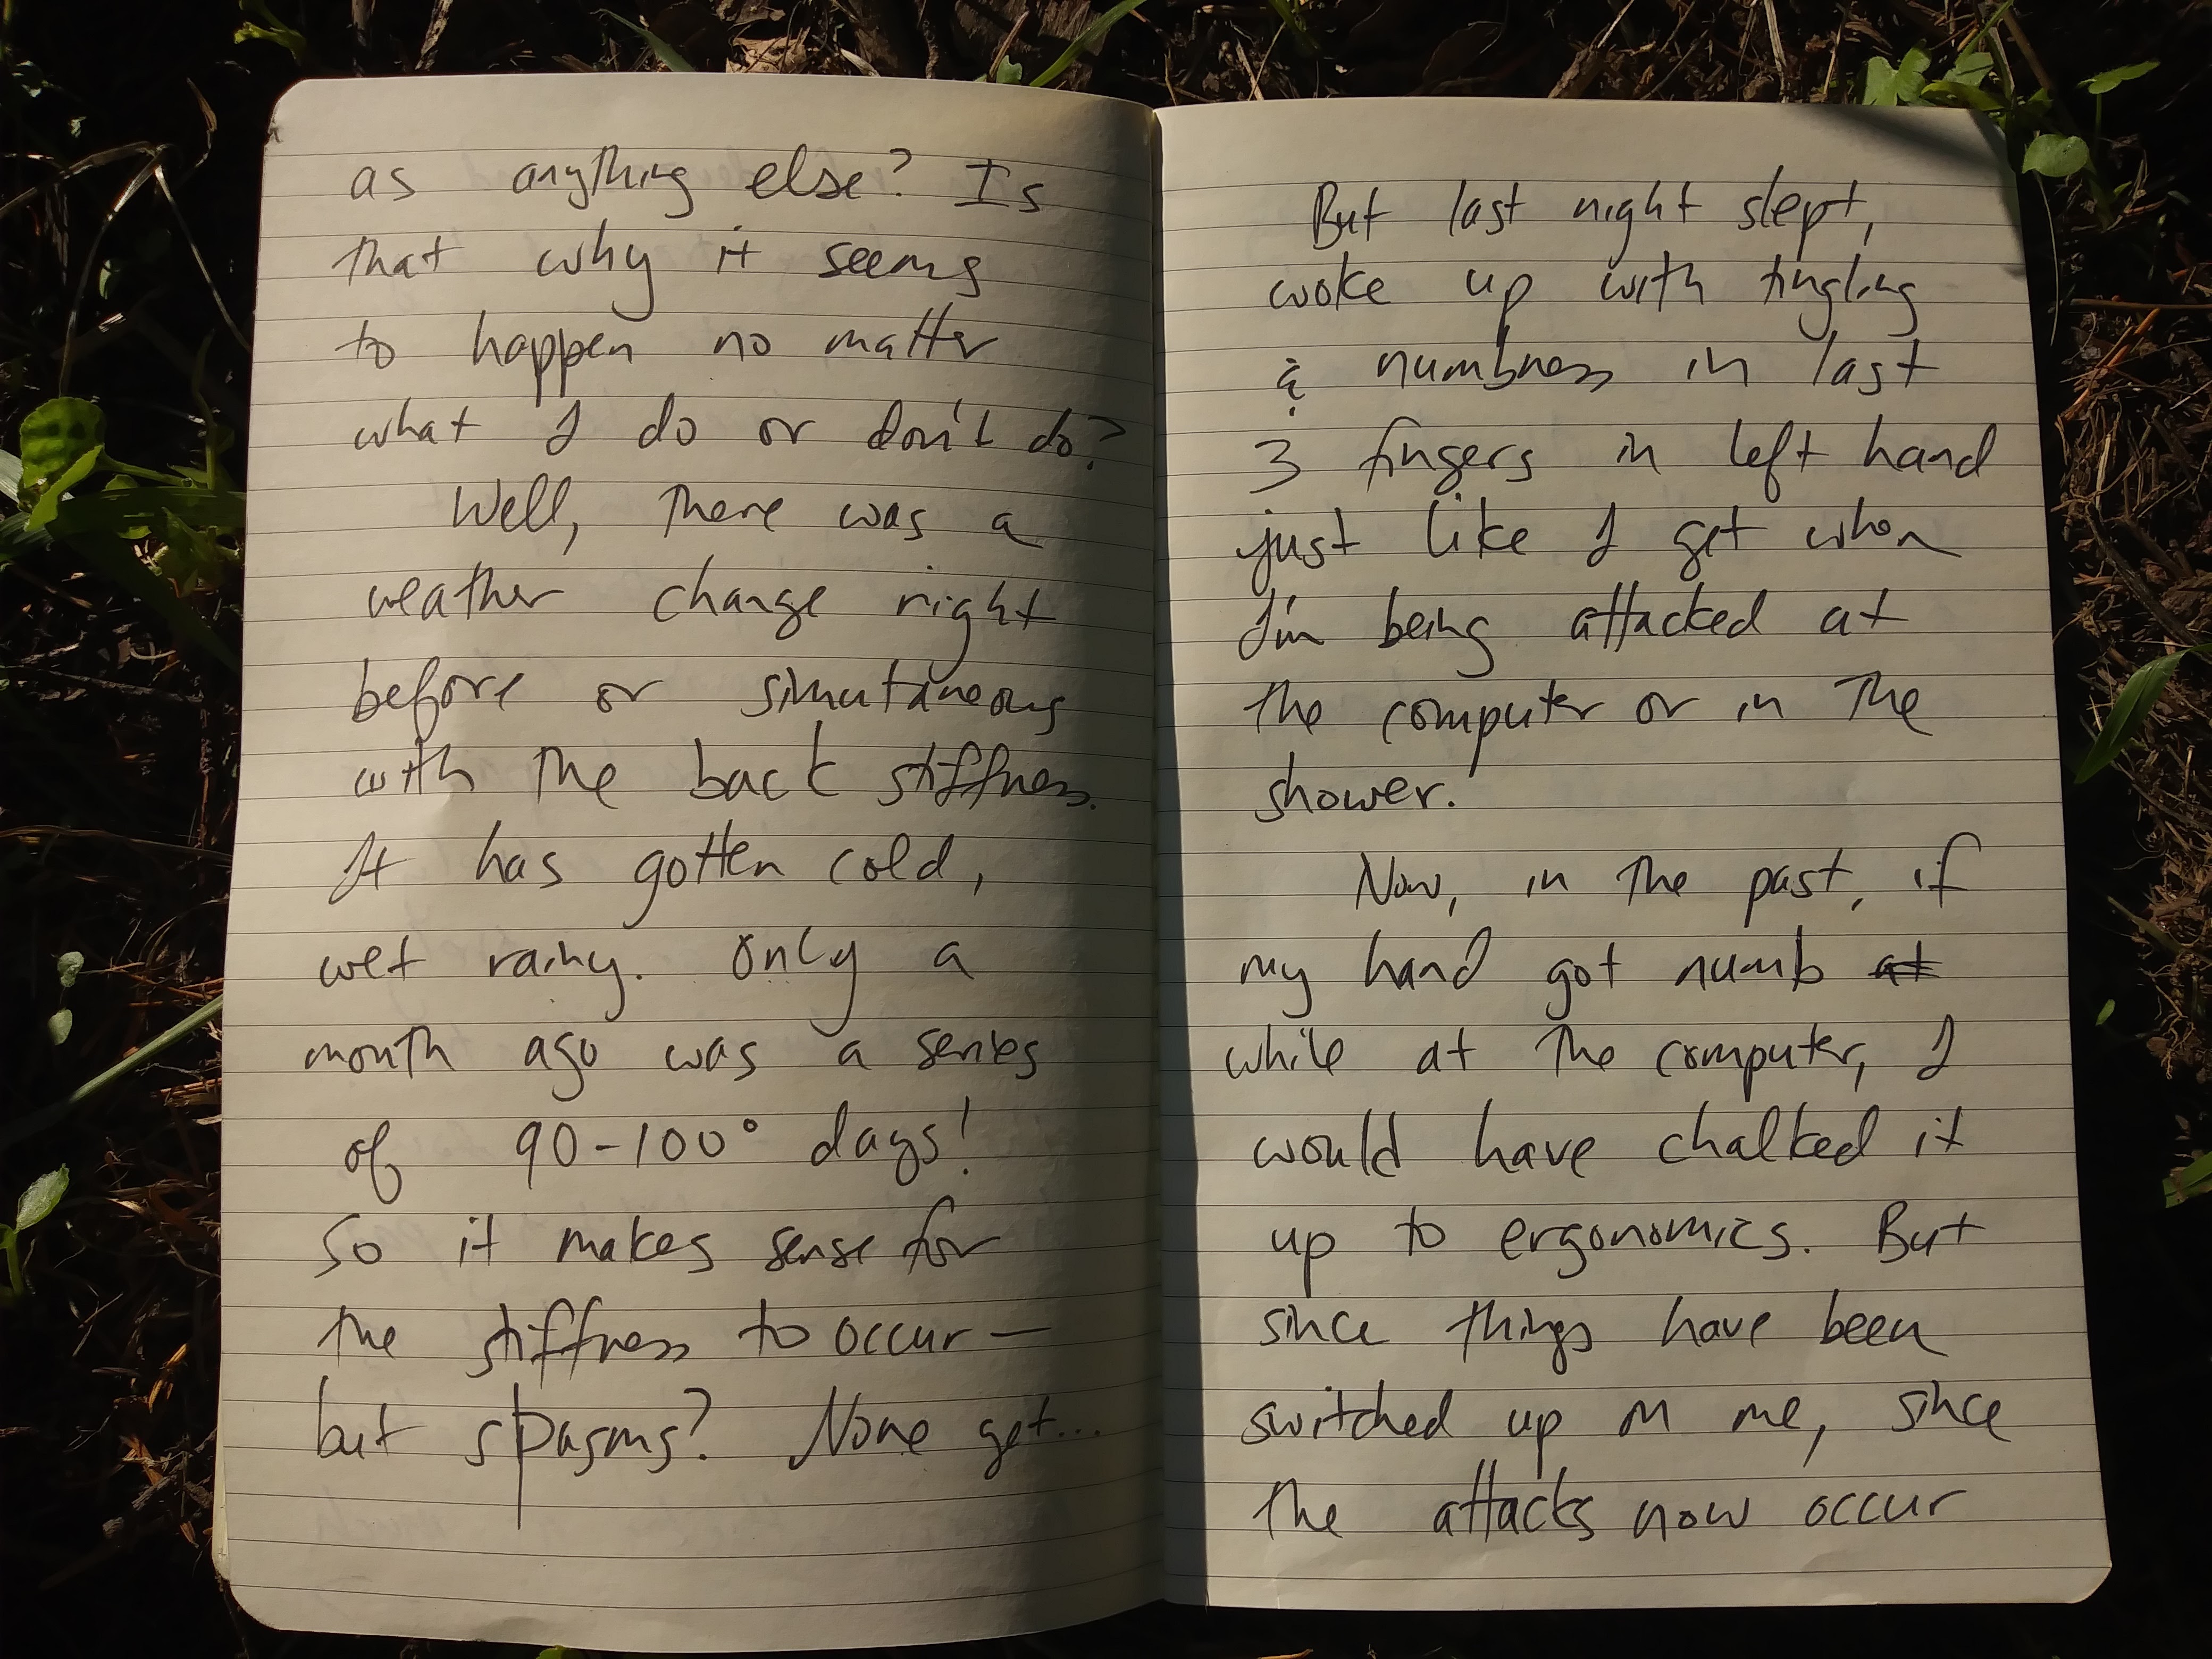 as anything else? Is
that why it seems
to happen no matter
what I do or don't do?
Well, there was a
weather change right
before or simutaneous
with the back stiffness.
It has gotten cold,
wet rainy. Only a
month ago was a series
of 90-100° days!
So it makes sense for
the stiffness to occur—
but spasms? None yet...
But last night slept,
woke up with tingling
& numbness in last
3 fingers in left hand
just like I get when
I'm being attacked at
the computer or in the
shower.
Now, in the past, if
my hand got numb at
while at the computer, I
would have chalked it
up to ergonomics. But
since things have been
switched up on me, since
the attacks now occur